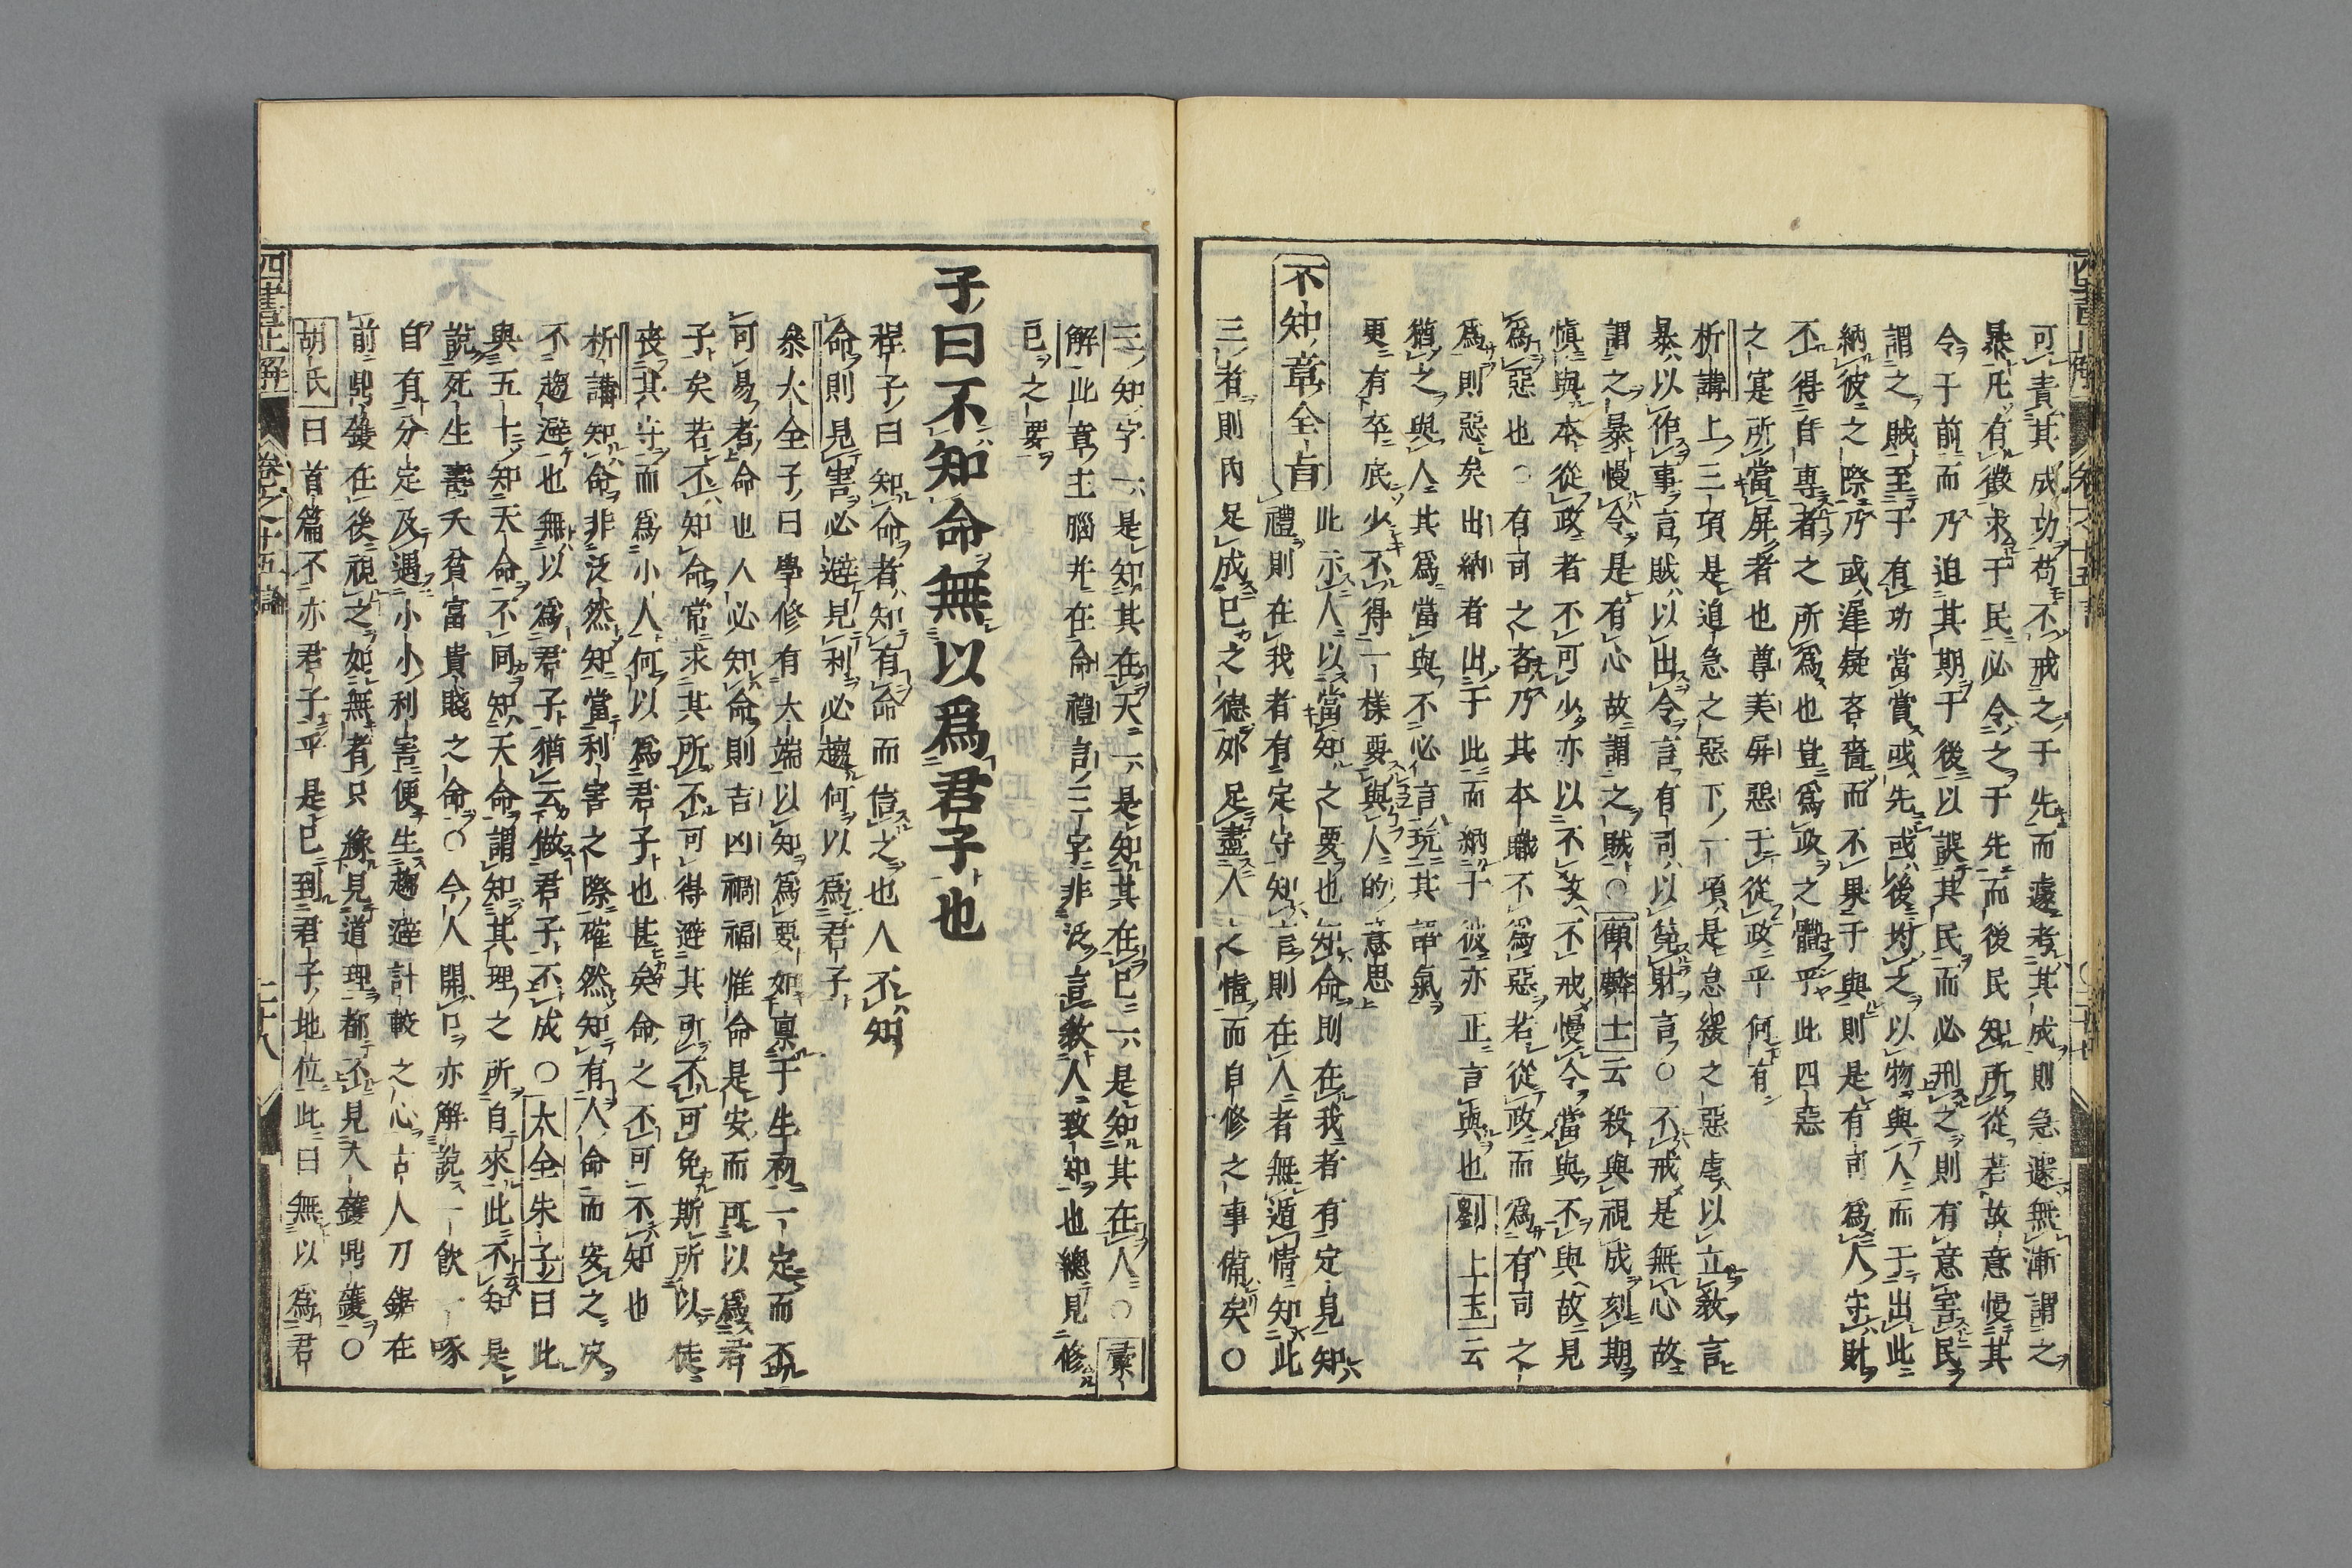 可責其成功苟不戒之于先而遽考其成則急遽無漸謂之
暴凡有徵求于民必令之于先而後民知所從若故意慢其
令于前而乃迫其期于後以誤其民而必刑之則有意害民
謂之賊至于有功當賞或先或後均之以物與人而于出此
納彼之際乃或遲疑吝嗇而不果于與則是有司為人守財
不得自專者之所為也豈為政之體乎此四惡
之寔所當屏者也尊美屏惡于從政乎何有
析講上三項是迫急之惡下一項是怠緩之惡虐以立教言
暴以作事言賊以出令言有司以財言○不戒是無心故
謂之暴慢令是有心故謂之賊○顧麟士云殺與視成刻期
慎與本從政者不可少亦以不教不戒慢令當與不與故見
為惡也○有司之吝乃其本職不為惡若從政而為有司之
為則惡矣出納者出于此而納于彼亦正言與也劉上玉云
猶之與人其為當與不必言玩其語氣
更有卒底少不得一樣要與人的意思
不知章全旨 此示人以當知之要也知命則在我者有定見知
禮則在我者有定守知言則在人者無遁情知此
三者則內足成已之德外足盡人之情而自修之事備矣○
三知字一是知其在天一是知其在已一是知其在人○彙
解此章主腦并在命禮言三字非泛言教人致知也總見修
已之要
子曰不知命無以為君子也
程子曰知命者知有命而信之也人不知
命則見害必避見利必趨何以為君子
泰大全子曰學修有大端以知為要如稟于生初一定而不
可易者命也人必知命則吉凶禍福惟命是安而可以為君
子矣若不知命常求其所不可得避其所不可免斯所以徒
喪其守而為小人何以為君子也甚矣命之不可不知也
析講知命非泛然知當利害之際確然知有人命而安之決
不趨避也無以為君子猶云做君子不成○大全朱子曰此
與五十知天命不同知天命謂知其理之所自來此不知是
說死生壽夭貧富貴賤之命○今人開口亦解說一飲一啄
自有分定及遇小小利害便生趨避計較之心古人刀鋸在
前鼎鑊在後視之如無者只緣見道理都不見大鑊鼎鑊○
胡氏曰首篇不亦君子乎是已到君子地位此曰無以為君
四書正解 卷之十五論 二十八